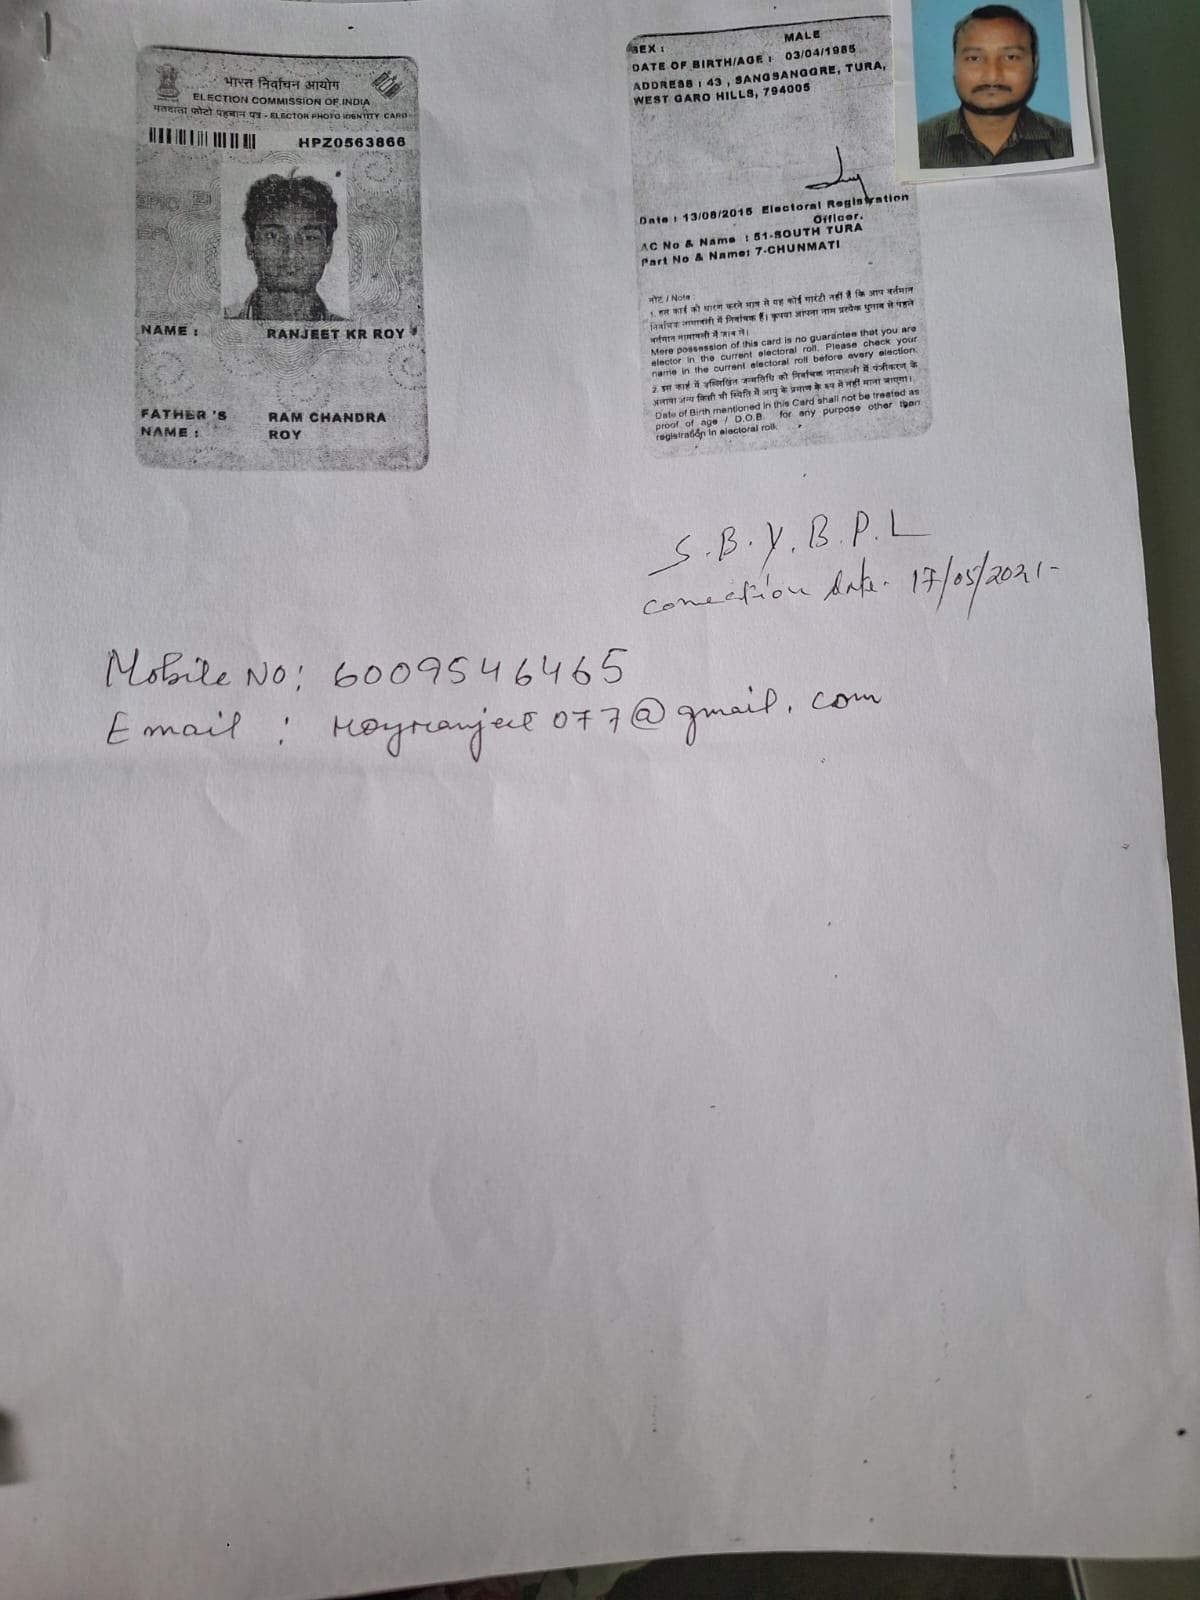 भारत निर्वाचन आयोग
ELECTION COMMISSION OF INDIA
मतदाता फोटो पहचान पत्र - ELECTOR PHOTO IDENTITY CARD
HPZ0563866
NAME : RANJEET KR ROY
FATHER'S NAME : RAM CHANDRA ROY
SEX : MALE
DATE OF BIRTH/AGE : 03/04/1985
ADDRESS : 43 , SANGSANGGRE, TURA,
WEST GARO HILLS, 794005
Date : 13/08/2015 Electoral Registration
Officer.
AC No & Name : 51-SOUTH TURA
Part No & Name: 7-CHUNMATI
नोट / Note :
1. इस कार्ड को धारण करने मात्र से यह कोई गारंटी नहीं है कि आप वर्तमान
निर्वाचक नामावली में निर्वाचक हैं। कृपया आपना नाम प्रत्येक चुनाव से पहले
वर्तमान नामावली में जांच लें।
Mere possession of this card is no guarantee that you are
elector in the current electoral roll. Please check your
name in the current electoral roll before every election.
2. इस कार्ड में उल्लिखित जन्मतिथि को निर्वाचक नामावली में पंजीकरण के
अलावा अन्य किसी भी स्थिति में आयु के प्रमाण के रूप में नहीं माना जाएगा।
Date of Birth mentioned in this Card shall not be treated as
proof of age / D.O.B. for any purpose other than
registration in electoral roll.
S.B.Y.B.P.L
Conection date. 17/05/2021-
Mobile No: 6009546465
Email : royranjeet077@gmail.com